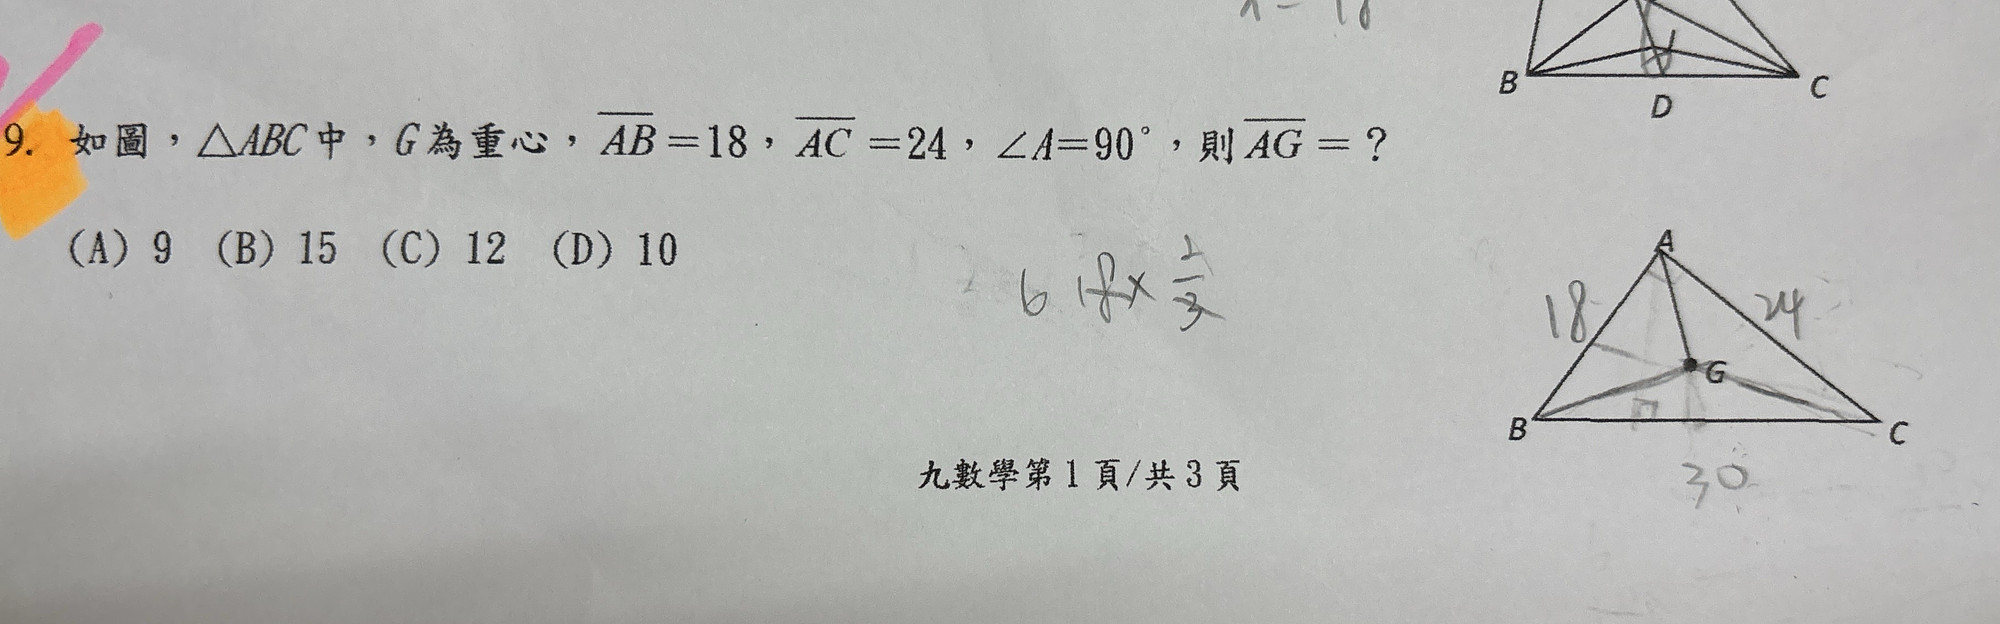 B
C
D
9. 如圖，△ABC中，G為重心，AB=18，AC=24，∠A=90°，則AG=?
(A) 9 (B) 15 (C) 12 (D) 10
6 18×
A
18
24
G
B
C
30
九數學第1頁/共3頁